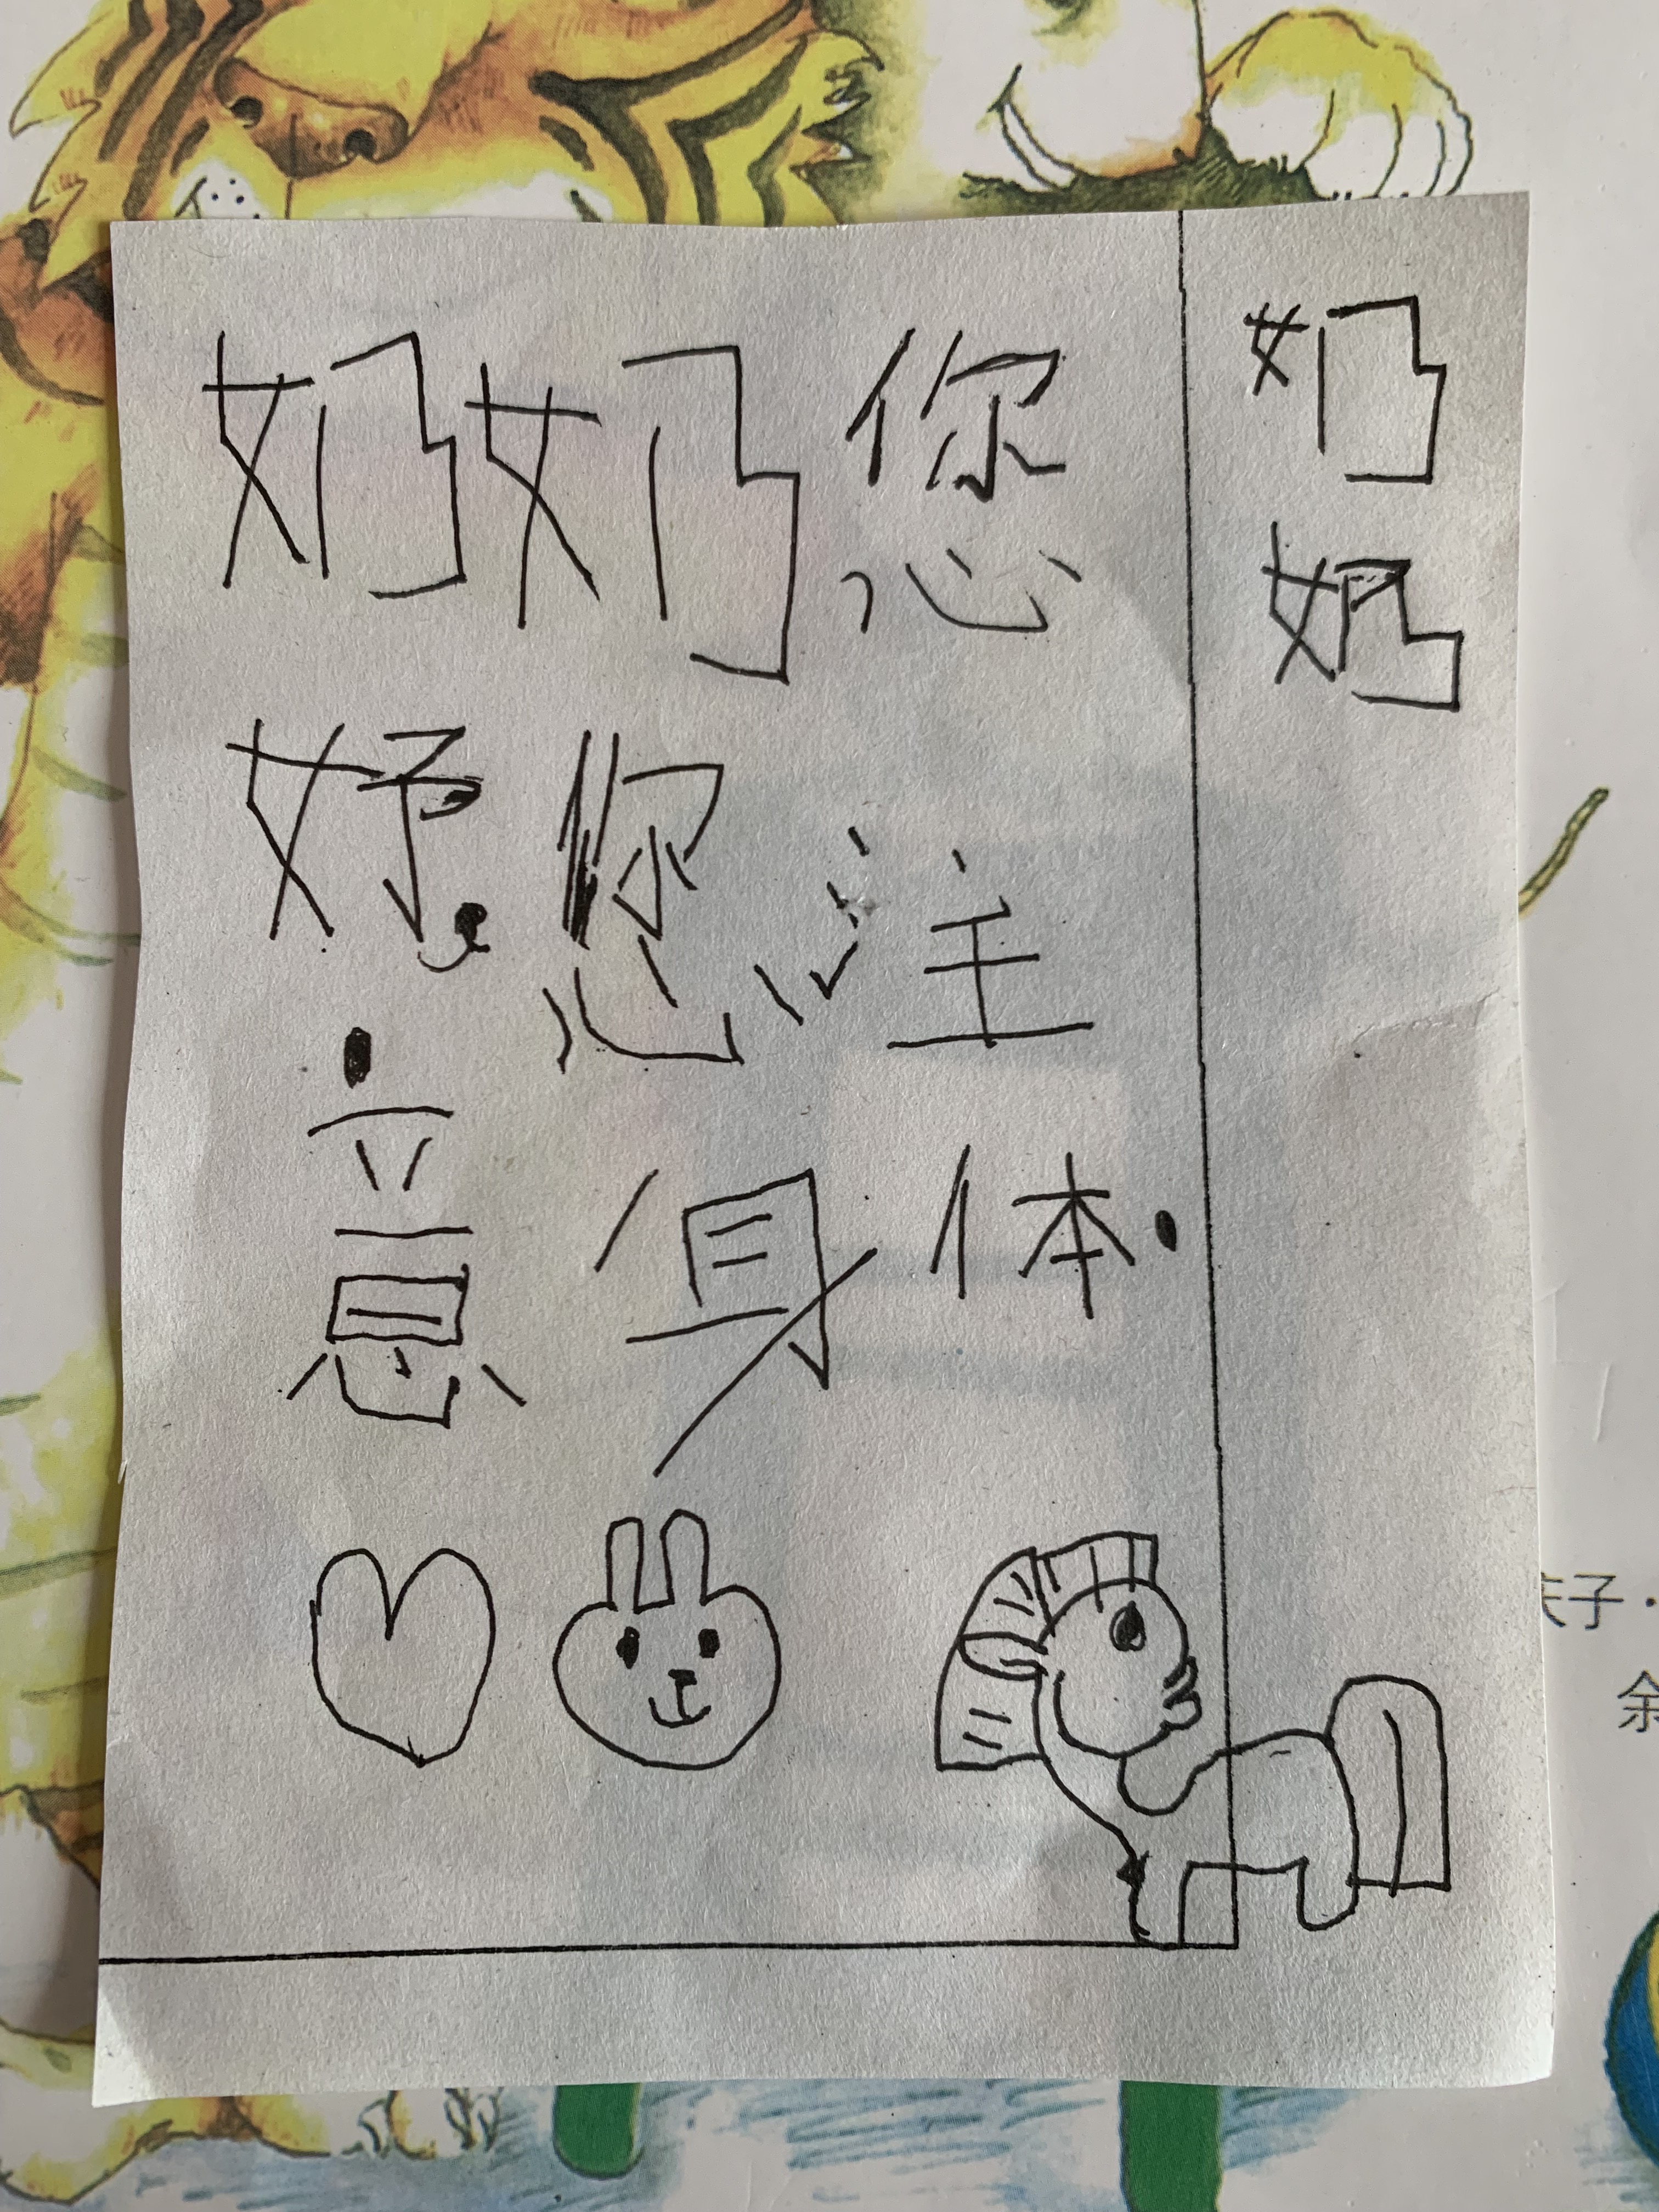 奶奶您
好,您注
意身体.
奶
奶
夫子·
余